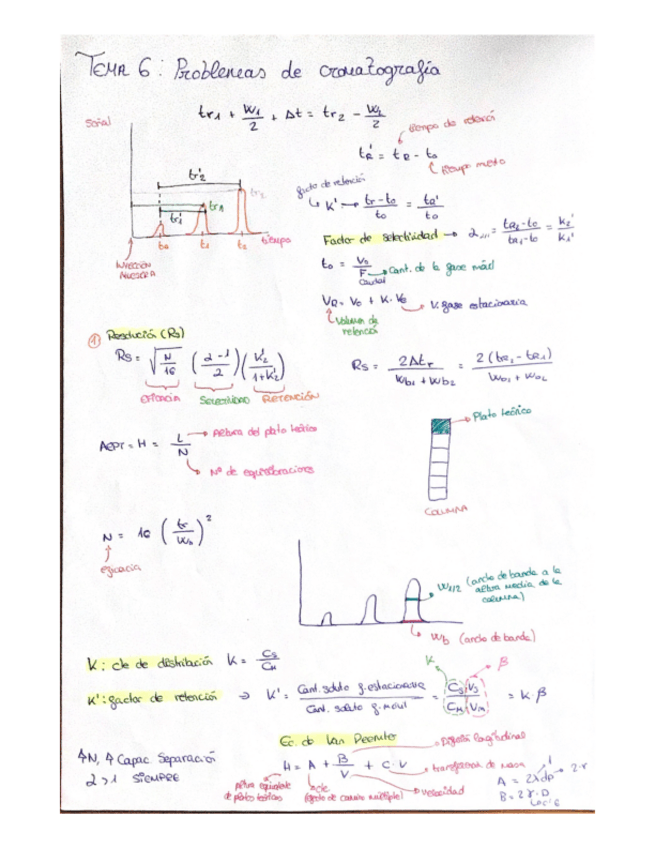 TEMA 6: Problemas de cromatografía
tr1 + W1/2 + Δt = tr2 - W2/2
Señal
tr'2
tr2
tr1
tr'1
to t1 t2 tiempo
INYECCIÓN
MUESTRA
tiempo de retenció
tR' = tR - to
tiempo muerto
factor de retención
K' → (tr - to)/to = tR'/to
Factor de selectividad → α = (tR2 - to)/(tR1 - to) = K2'/K1'
to = Vo/F → Cant. de la fase móvil
Caudal
VR = Vo + K · Ve → V. fase estacionaria
Volumen de
retenció
① Resolución (Rs)
Rs = √(N/16) ((α - 1)/2) (K2'/(1 + K2'))
EFICACIA SELECTIVIDAD RETENCIÓN
Rs = 2Δtr/(Wb1 + Wb2) = 2(tR2 - tR1)/(Wb1 + Wb2)
Plato teórico
AEPT = H = L/N → Altura del plato teórico
Nº de equilibraciones
COLUMNA
N = 16 (tr/Wb)²
eficacia
W1/2 (ancho de banda a la
altura media de la
columna)
Wb (ancho de banda)
K: cte de distribución K = Cs/CM
K': factor de retención ⇒ K' = Cant. soluto f. estacionaria / Cant. soluto f. móvil = Cs Vs / CM VM = K · β
K
β
↑N, ↑ Capac. Separació
α > 1 SIEMPRE
Ec. de Van Deemter
difusión longitudinal
H = A + B/V + C · V
transferencia de masa
velocidad
Altura equivalente
de platos teóricos
cte
(efecto de camino múltiple)
A = 2λdp
2·r
B = 2γ·D